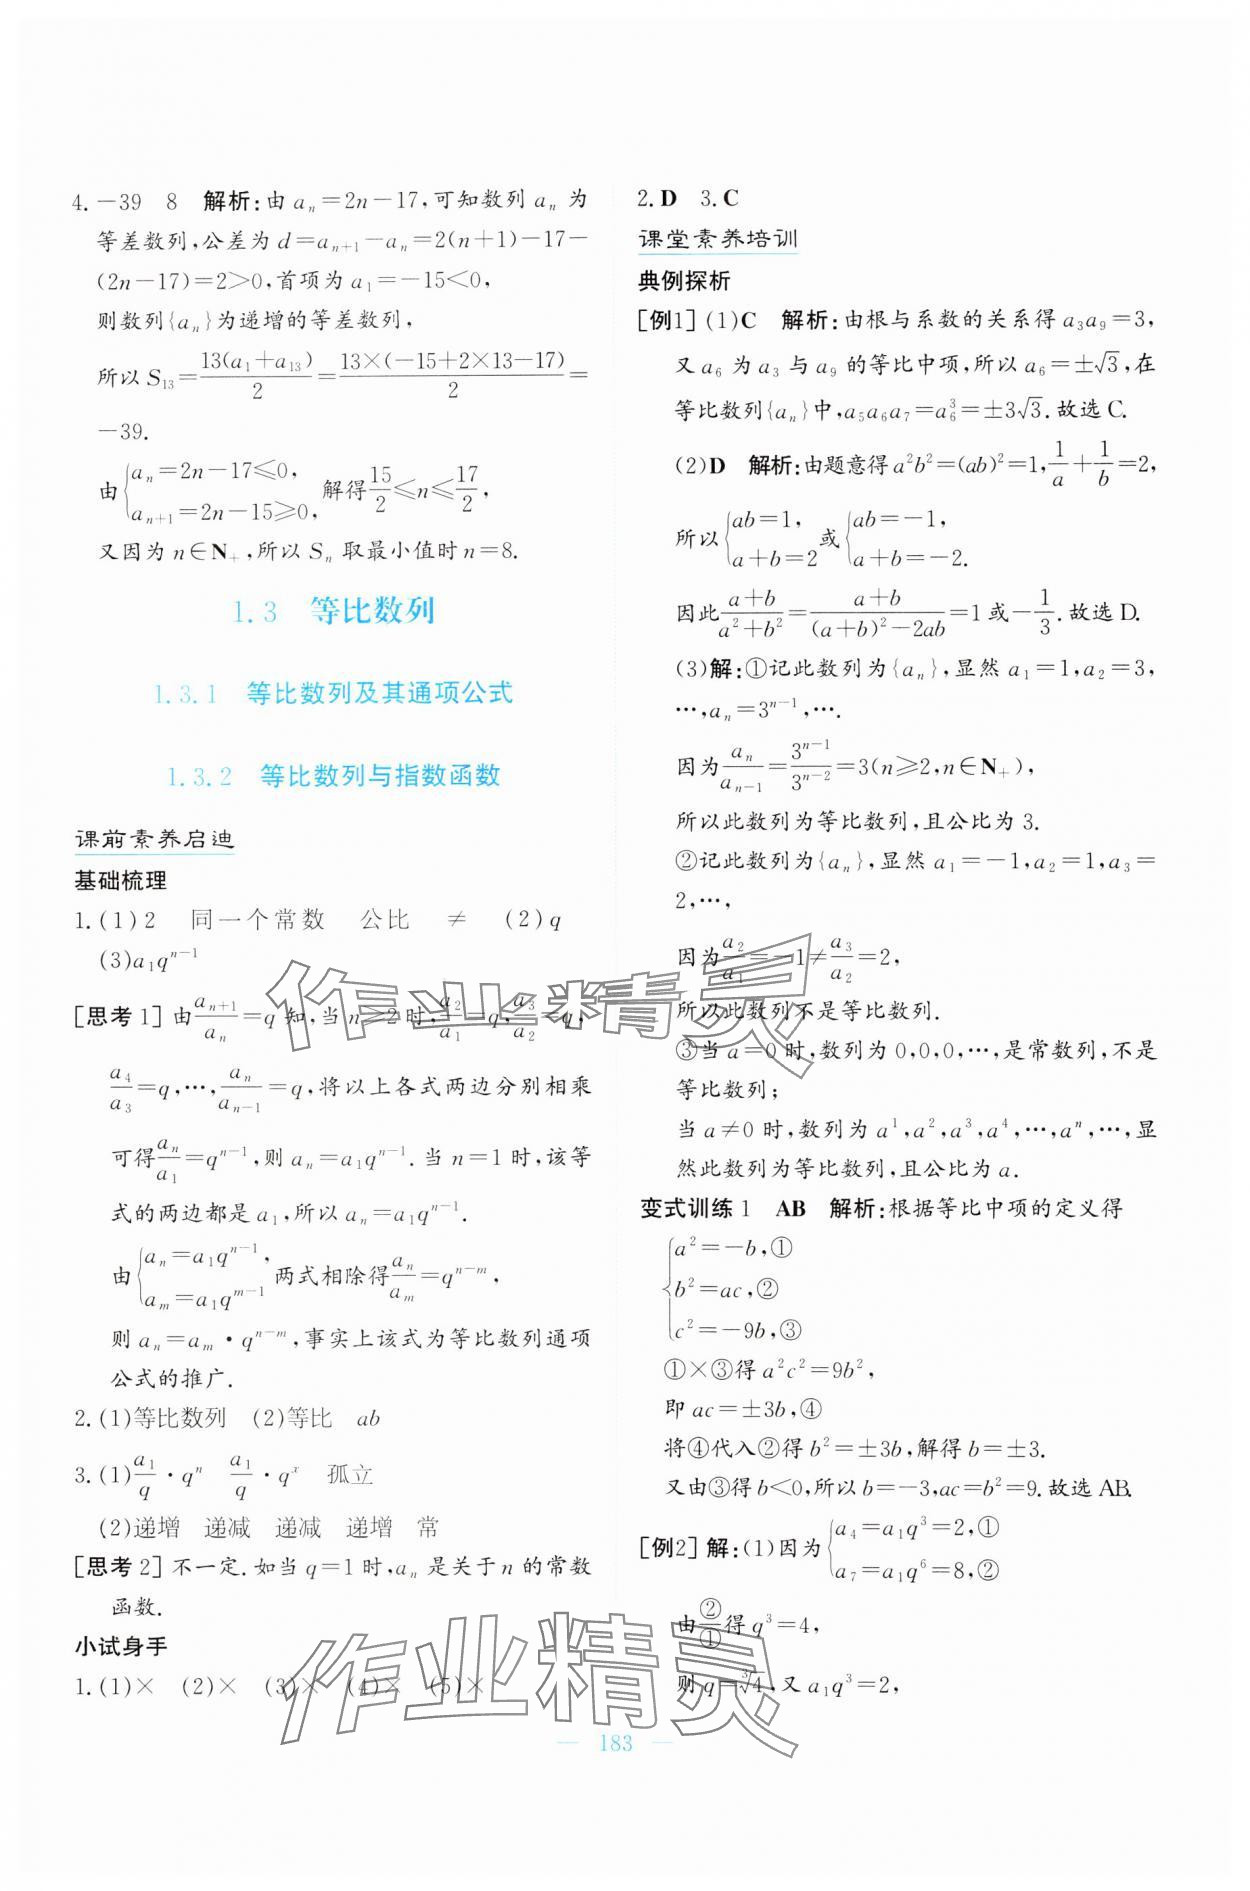 4. －39　8　解析:由 aₙ=2n－17,可知数列 aₙ 为
等差数列,公差为 d=aₙ₊₁－aₙ=2(n+1)－17－
(2n－17)=2>0,首项为 a₁=－15<0,
则数列{aₙ}为递增的等差数列,
所以 S₁₃=13(a₁+a₁₃)/2=13×(－15+2×13－17)/2=
－39.
由{aₙ=2n－17≤0, aₙ₊₁=2n－15≥0, 解得15/2≤n≤17/2,
又因为 n∈N₊,所以 Sₙ 取最小值时 n=8.
1.3　等比数列
1.3.1　等比数列及其通项公式
1.3.2　等比数列与指数函数
课前素养启迪
基础梳理
1. (1)2　同一个常数　公比　≠　(2)q
(3)a₁qⁿ⁻¹
[思考1] 由aₙ₊₁/aₙ=q 知,当 n≥2 时,a₂/a₁=q,a₃/a₂=q,
a₄/a₃=q,…,aₙ/aₙ₋₁=q,将以上各式两边分别相乘
可得aₙ/a₁=qⁿ⁻¹,则 aₙ=a₁qⁿ⁻¹. 当 n=1 时,该等
式的两边都是 a₁,所以 aₙ=a₁qⁿ⁻¹.
由{aₙ=a₁qⁿ⁻¹, aₘ=a₁qᵐ⁻¹ 两式相除得aₙ/aₘ=qⁿ⁻ᵐ,
则 aₙ=aₘ·qⁿ⁻ᵐ,事实上该式为等比数列通项
公式的推广.
2. (1)等比数列　(2)等比　ab
3. (1)a₁/q·qⁿ　a₁/q·qˣ　孤立
(2)递增　递减　递减　递增　常
[思考2] 不一定. 如当 q=1 时,aₙ 是关于 n 的常数
函数.
小试身手
1. (1)×　(2)×　(3)×　(4)×　(5)×
2. D　3. C
课堂素养培训
典例探析
[例1] (1)C　解析:由根与系数的关系得 a₃a₉=3,
又 a₆ 为 a₃ 与 a₉ 的等比中项,所以 a₆=±√3,在
等比数列{aₙ}中,a₅a₆a₇=a₆³=±3√3. 故选 C.
(2)D　解析:由题意得 a²b²=(ab)²=1,1/a+1/b=2,
所以{ab=1, a+b=2 或{ab=－1, a+b=－2.
因此(a+b)/(a²+b²)=(a+b)/((a+b)²－2ab)=1 或－1/3. 故选 D.
(3)解:①记此数列为{aₙ},显然 a₁=1,a₂=3,
…,aₙ=3ⁿ⁻¹,….
因为aₙ/aₙ₋₁=3ⁿ⁻¹/3ⁿ⁻²=3(n≥2,n∈N₊),
所以此数列为等比数列,且公比为 3.
②记此数列为{aₙ},显然 a₁=－1,a₂=1,a₃=
2,…,
因为a₂/a₁=－1≠a₃/a₂=2,
所以此数列不是等比数列.
③当 a=0 时,数列为 0,0,0,…,是常数列,不是
等比数列;
当 a≠0 时,数列为 a¹,a²,a³,a⁴,…,aⁿ,…,显
然此数列为等比数列,且公比为 a.
变式训练 1　AB　解析:根据等比中项的定义得
{a²=－b,①
b²=ac,②
c²=－9b,③
①×③得 a²c²=9b²,
即 ac=±3b,④
将④代入②得 b²=±3b,解得 b=±3.
又由③得 b<0,所以 b=－3,ac=b²=9. 故选 AB.
[例2] 解:(1)因为{a₄=a₁q³=2,① a₇=a₁q⁶=8,②
由②/①得 q³=4,
则 q=∛4,又 a₁q³=2,
作业精灵
作业精灵
— 183 —